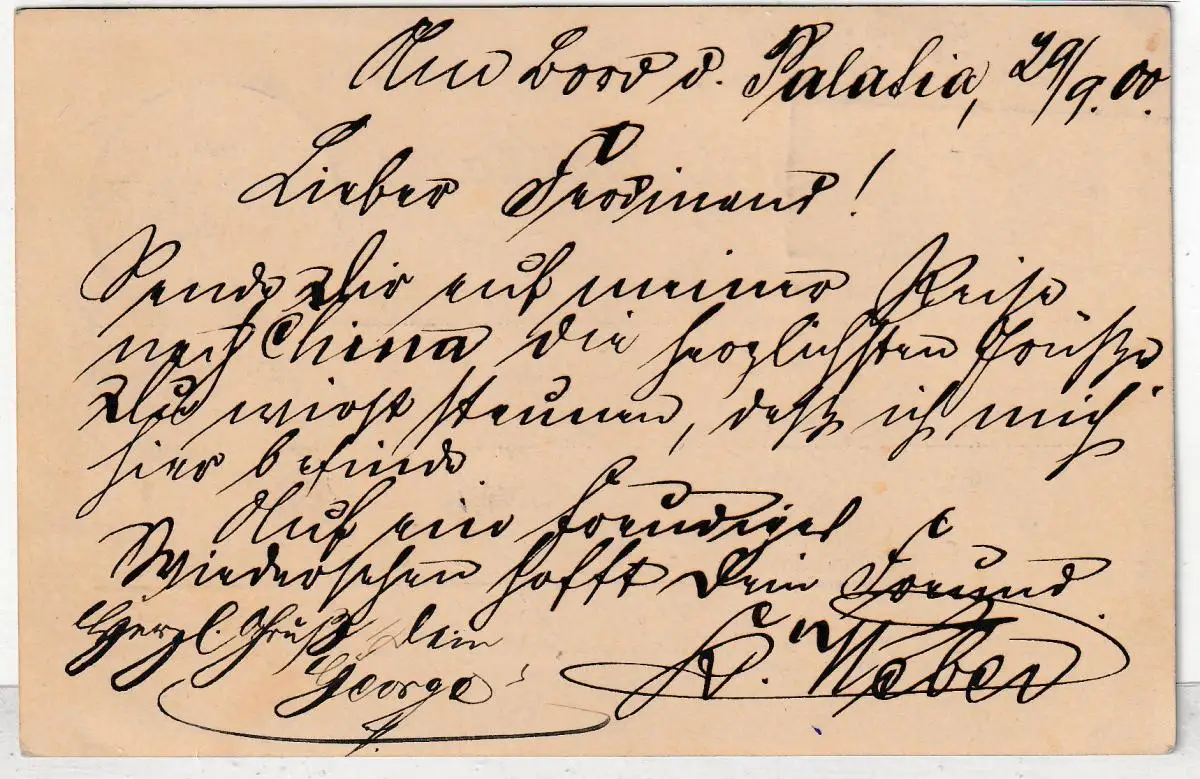 An Bord d. Palatia, 29/9.00.
Lieber Ferdinand!
Sende Dir auf meiner Reise
nach China die herzlichsten Grüße
Du wirst staunen, daß ich mich
hier befinde.
Auf ein freudiges
Wiedersehen hofft Dein Freund
Herzl. Gruß Dein
George
K. Weber